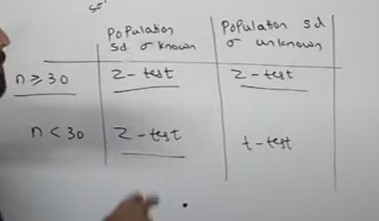 Population sd σ known
Population sd σ unknown
n ≥ 30 Z-test Z-test
n < 30 Z-test t-test